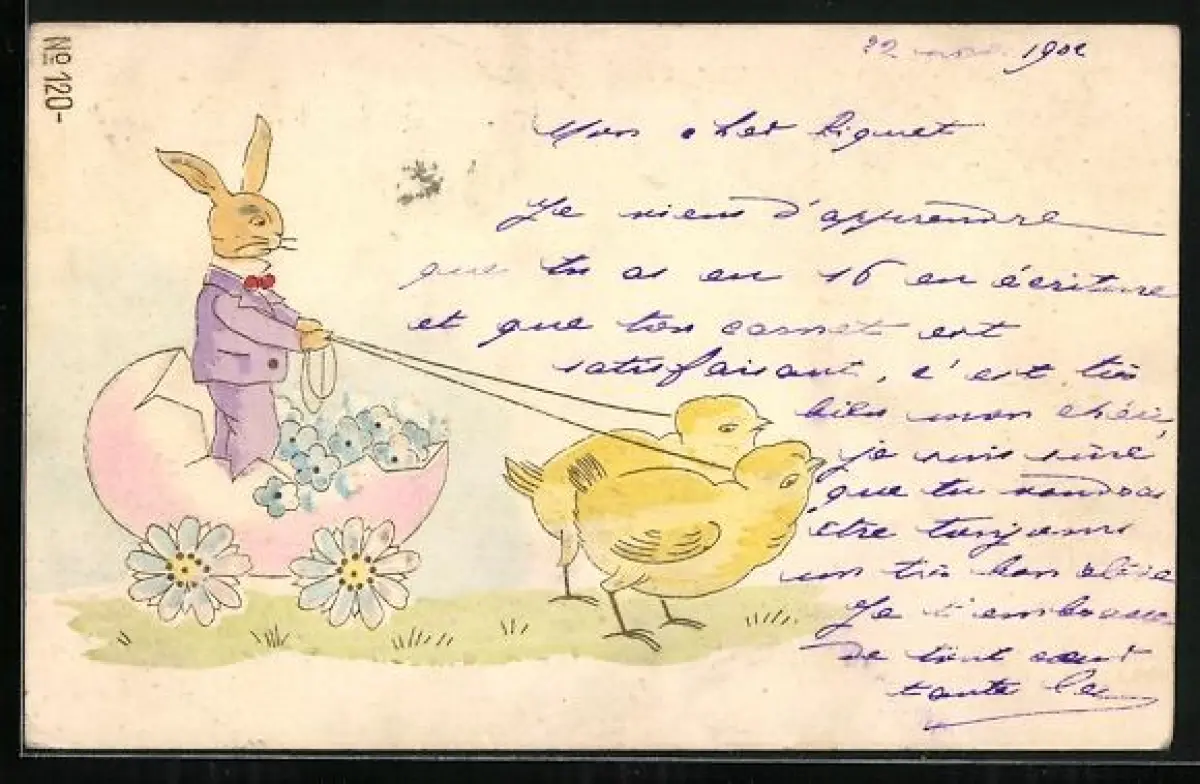 No 120-
22 1902
Mon cher
Je viens d'apprendre
que tu as eu 16 en écriture
et que ton carnet est
satisfaisant, c'est très
bien mon chéri,
je suis sûre
que tu voudras
être toujours
un très bon élève
Je t'embrasse
de tout cœur
tante